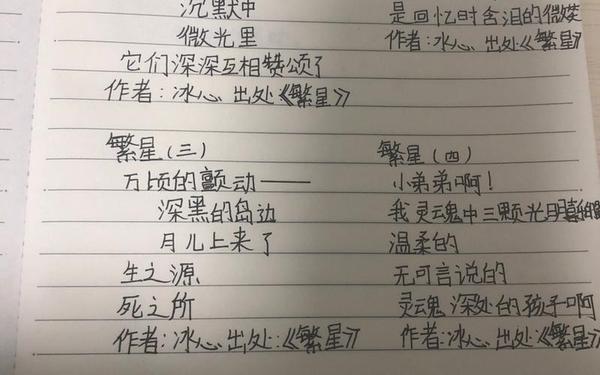 沉默中
微光里
它们深深互相赞颂了
作者:冰心 出处《繁星》
是回忆时含泪的微笑
作者:冰心 出处《繁星》
繁星(三)
万顷的颤动——
深黑的岛边
月儿上来了
生之源
死之所
作者:冰心 出处:《繁星》
繁星(四)
小弟弟啊!
我灵魂中三颗光明喜
温柔的
无可言说的
灵魂深处的孩子啊
作者:冰心 出处:《繁星》